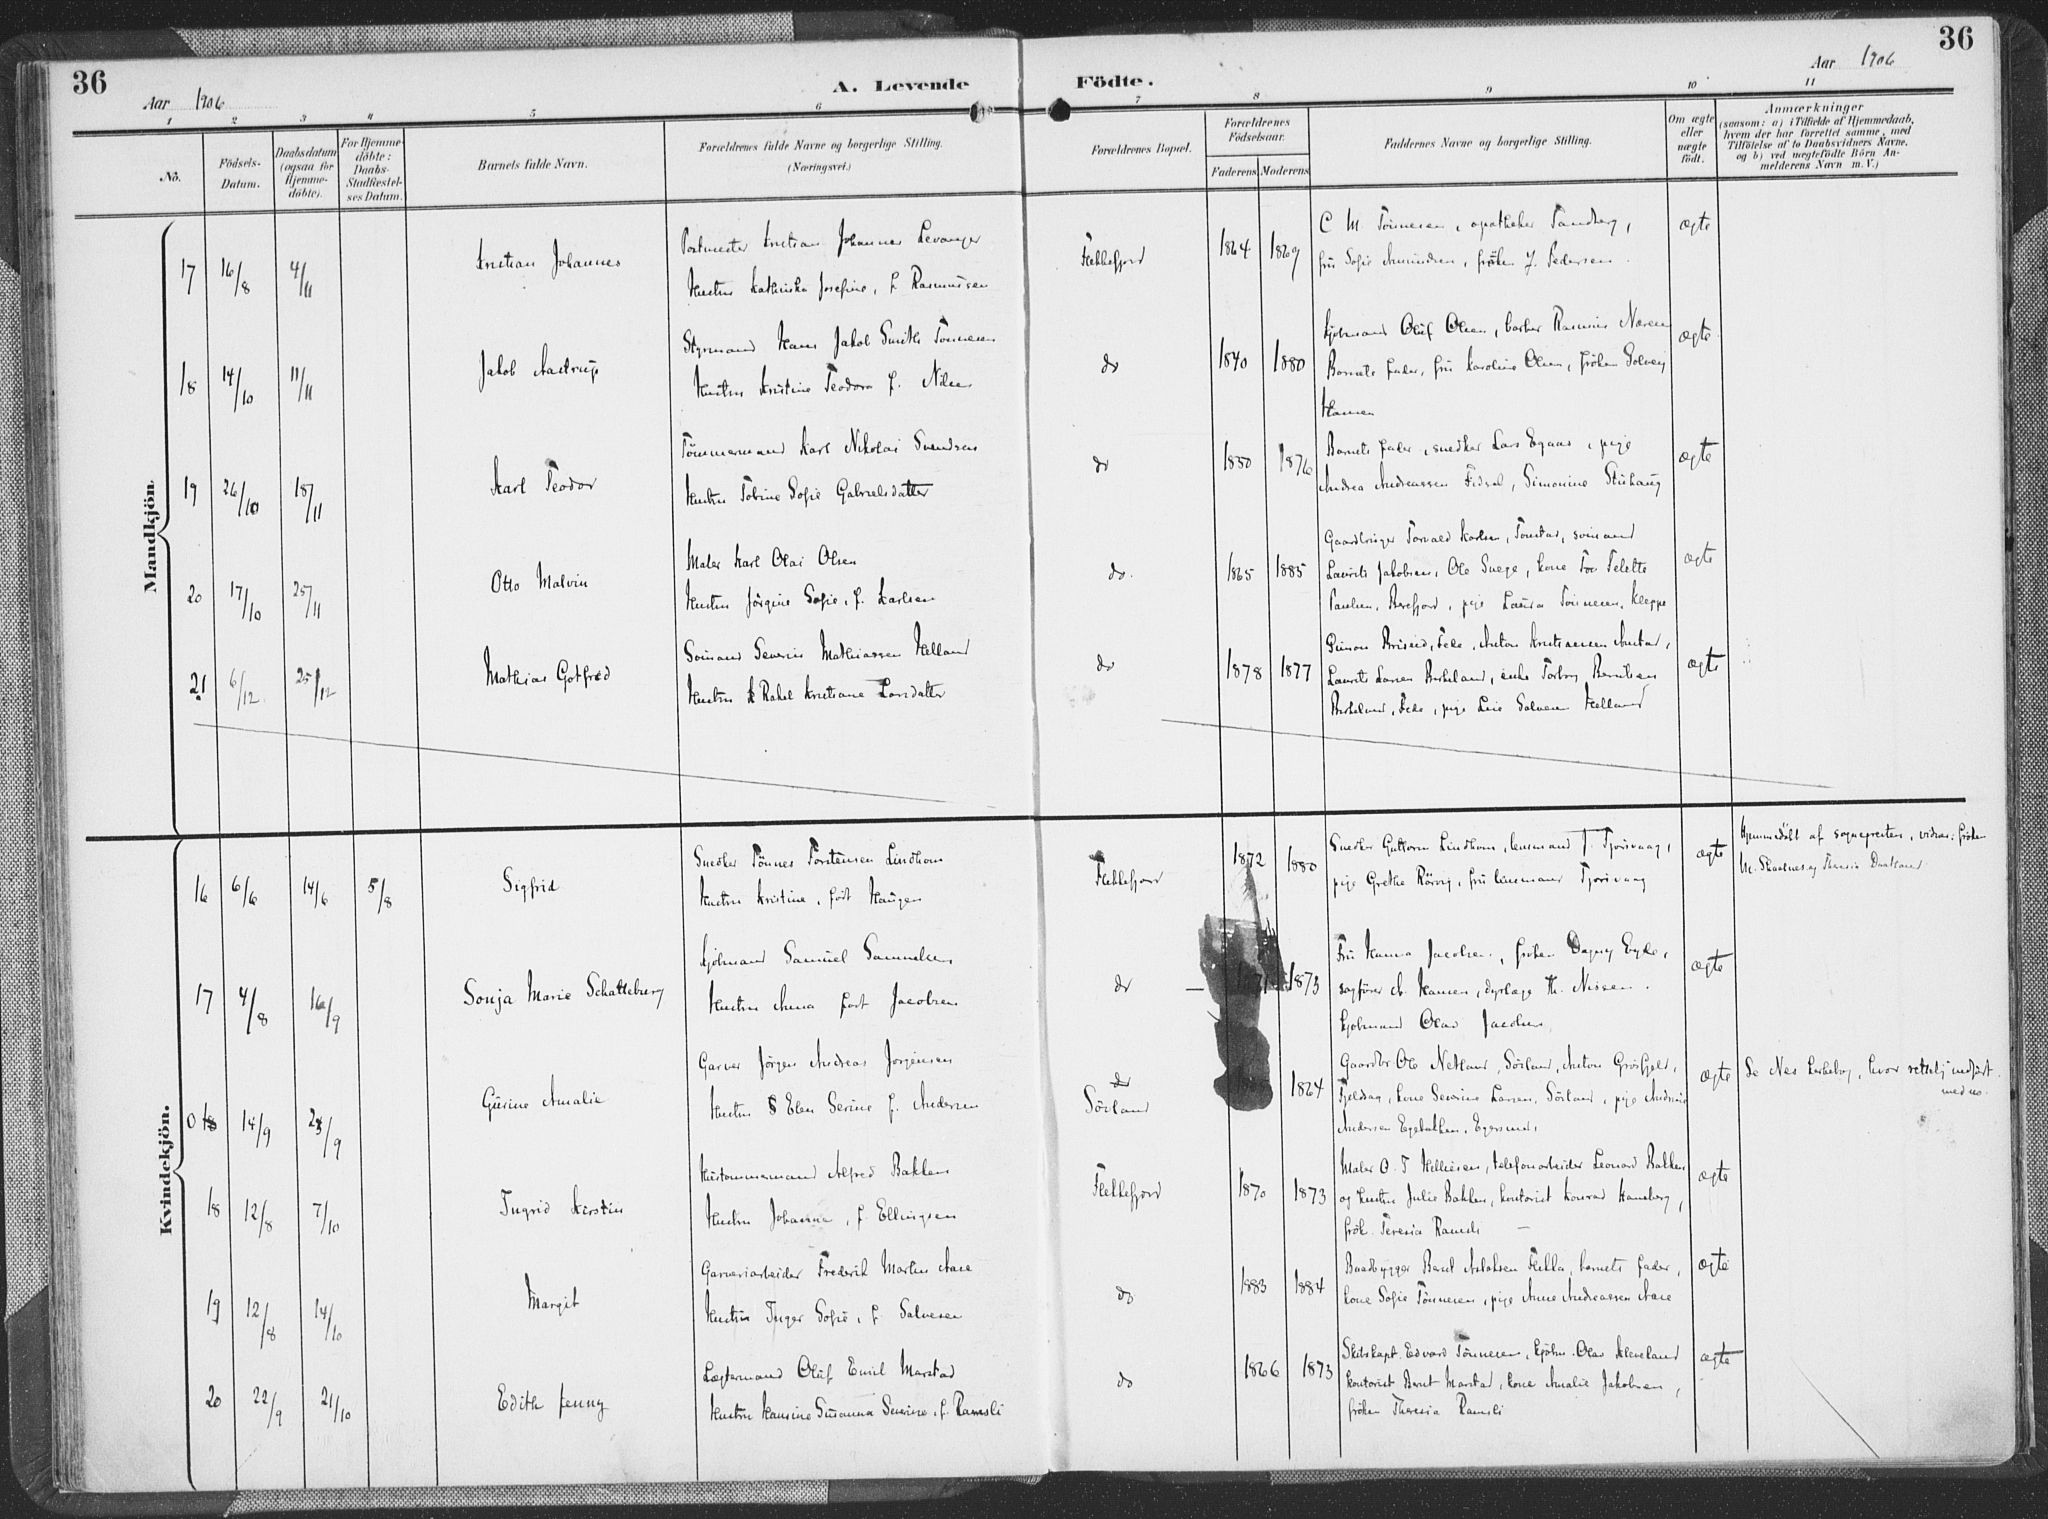 36
Aar 1906
A. Levende Födte.
Aar 1906
36
1 2 3 4 5 6 7 8 9 10 11
No.
Födsels-Datum.
Daabsdatum (ogsaa for Hjemmedöbte).
For Hjemmedöbte: Daabs-Stadfæstelses Datum.
Barnets fulde Navn.
Forældrenes fulde Navne og borgerlige Stilling. (Næringsvei.)
Forældrenes Bopæl.
Forældrenes Födselsaar.
Faderens Moderens
Faddernes Navne og borgerlige Stilling.
Om ægte eller uægte födt.
Anmærkninger
(saasom: a) i Tilfælde af Hjemmedaab, hvem der har forrettet samme, med Tilföielse af to Daabsvidners Navne, og b) ved uægtefödte Börn Anmelderens Navn m. V.)
Mandkjön.
17 16/8 4/11 Kristian Johannes
Postmester Kristian Johannes Levanger
Hustru Kathinka Josefine, f. Rasmussen
Flekkefjord 1864 1869
C M Tönnesen, apotheker Tandberg,
fru Sofie Amundsen, fröken J. Pedersen.
ægte
18 14/10 11/11 Jakob Aastrup
Styrmand Hans Jakob Smith Tönnesen
Hustru Kristine Teodora f. Nilsen
do 1840 1880
Kjöbmand Oluf Olsen, barber Rasmus Naren
Barnets fader, fru Karoline Olsen, fröken Solveig
Hansen
ægte
19 26/10 18/11 Karl Teodor
Tömmermand Karl Nikolai Svendsen
Hustru Tobine Sofie Gabrielsdatter
do 1850 1876
Barnets fader, snedker Lars Egaas, pige
Andrea Andreassen Fidsel, Simonine Stuhaug
ægte
20 17/10 25/11 Otto Malvin
Maler Karl Olai Olsen
Hustru Jörgine Sofie, f. Karlsen
do. 1865 1885
Gaardbruger Torvald Karlsen, Tomstad, sömand
Laurits Jakobsen, Ole Svege, kone Tea Telette
Paulsen, Berrefjord, pige Laura Tönnesen, Kleppe
ægte
21 6/12 25/12 Mathias Gotfred
Sömand Severin Mathiassen Helland
Hustru Rakel Kristiane Larsdatter
do 1878 1877
Simon Briseid, Fede, Anton Kristiansen
Laurits Larsen Birkeland, enke Torborg Berntsen
Birkeland, Fede, pige Lise Salvesen Helland
ægte
Kvindekjön.
16 6/6 14/6 5/8 Sigfrid
Snedker Tönnes Torstensen Lindhom
Hustru Kristine, född Haugen
Flekkefjord 1872 1880
Snedker Guttorm Lindhom, lensmand T. Tjorsvaag,
pige Grethe Rörvig, fru lensmand Tjorsvaag
ægte
Hjemmedöbt af sognepresten, vidner: fröken
M. Skaalnes og Theresia Daatland
17 4/8 16/9 Sonja Marie Schatteburg
Kjöbmand Samuel Samuelsen
Hustru Anna fört Jacobsen
do 1873
Fru Hanna Jacobsen, fröken Dagny Eyde,
sagförer A. Hansen, dyrlæge Th. Nissen.
Kjöbmand Olav Jacobsen
ægte
0 18 14/9 23/9 Gurine Amalie
Garver Jörgen Andreas Jörgensen
Hustru Elen Serine f. Andersen
do
Sörland
1864
Gaardbr Ole Netland, Sörland, Anton Grösfjeld,
Fjeldsaa, kone Severine Larsen, Sörland, pige Andrine
Andersen Egebakken, Egersund.
ægte
Se Nes kirkebog, hvor rettelig indfört
med no.
18 12/8 7/10 Ingrid Kirstin
Hustömmermand Alfred Bakken
Hustru Johanna, f. Ellingsen
Flekkefjord 1870 1873
Maler O. T Helliesen, telefonarbeider Leonard Bakken
og hustru Julie Bakken, kontorist Konrad Hamberg,
frök. Teresia Ramsli
ægte
19 12/8 14/10 Margit
Garveriarbeider Frederik Martin Aase
Hustru Inger Sofie, f. Salvesen
do 1883 1884
Baadbygger Berel Aslaksen Flikka, barnets fader,
kone Sofie Tönnesen, pige Anne Andreassen Aase
ægte
20 22/9 21/10 Edith Jenny
Lægtermand Oluf Emil Marstad
Hustru Hansine Susanna Severine, f. Ramsli
do 1866 1873
Skibskapt. Edvard Tönnesen, kjöbm. Olav Kleveland
kontorist Bernt Marstad, kone Amalie Jakobsen,
fröken Theresia Ramsli
ægte